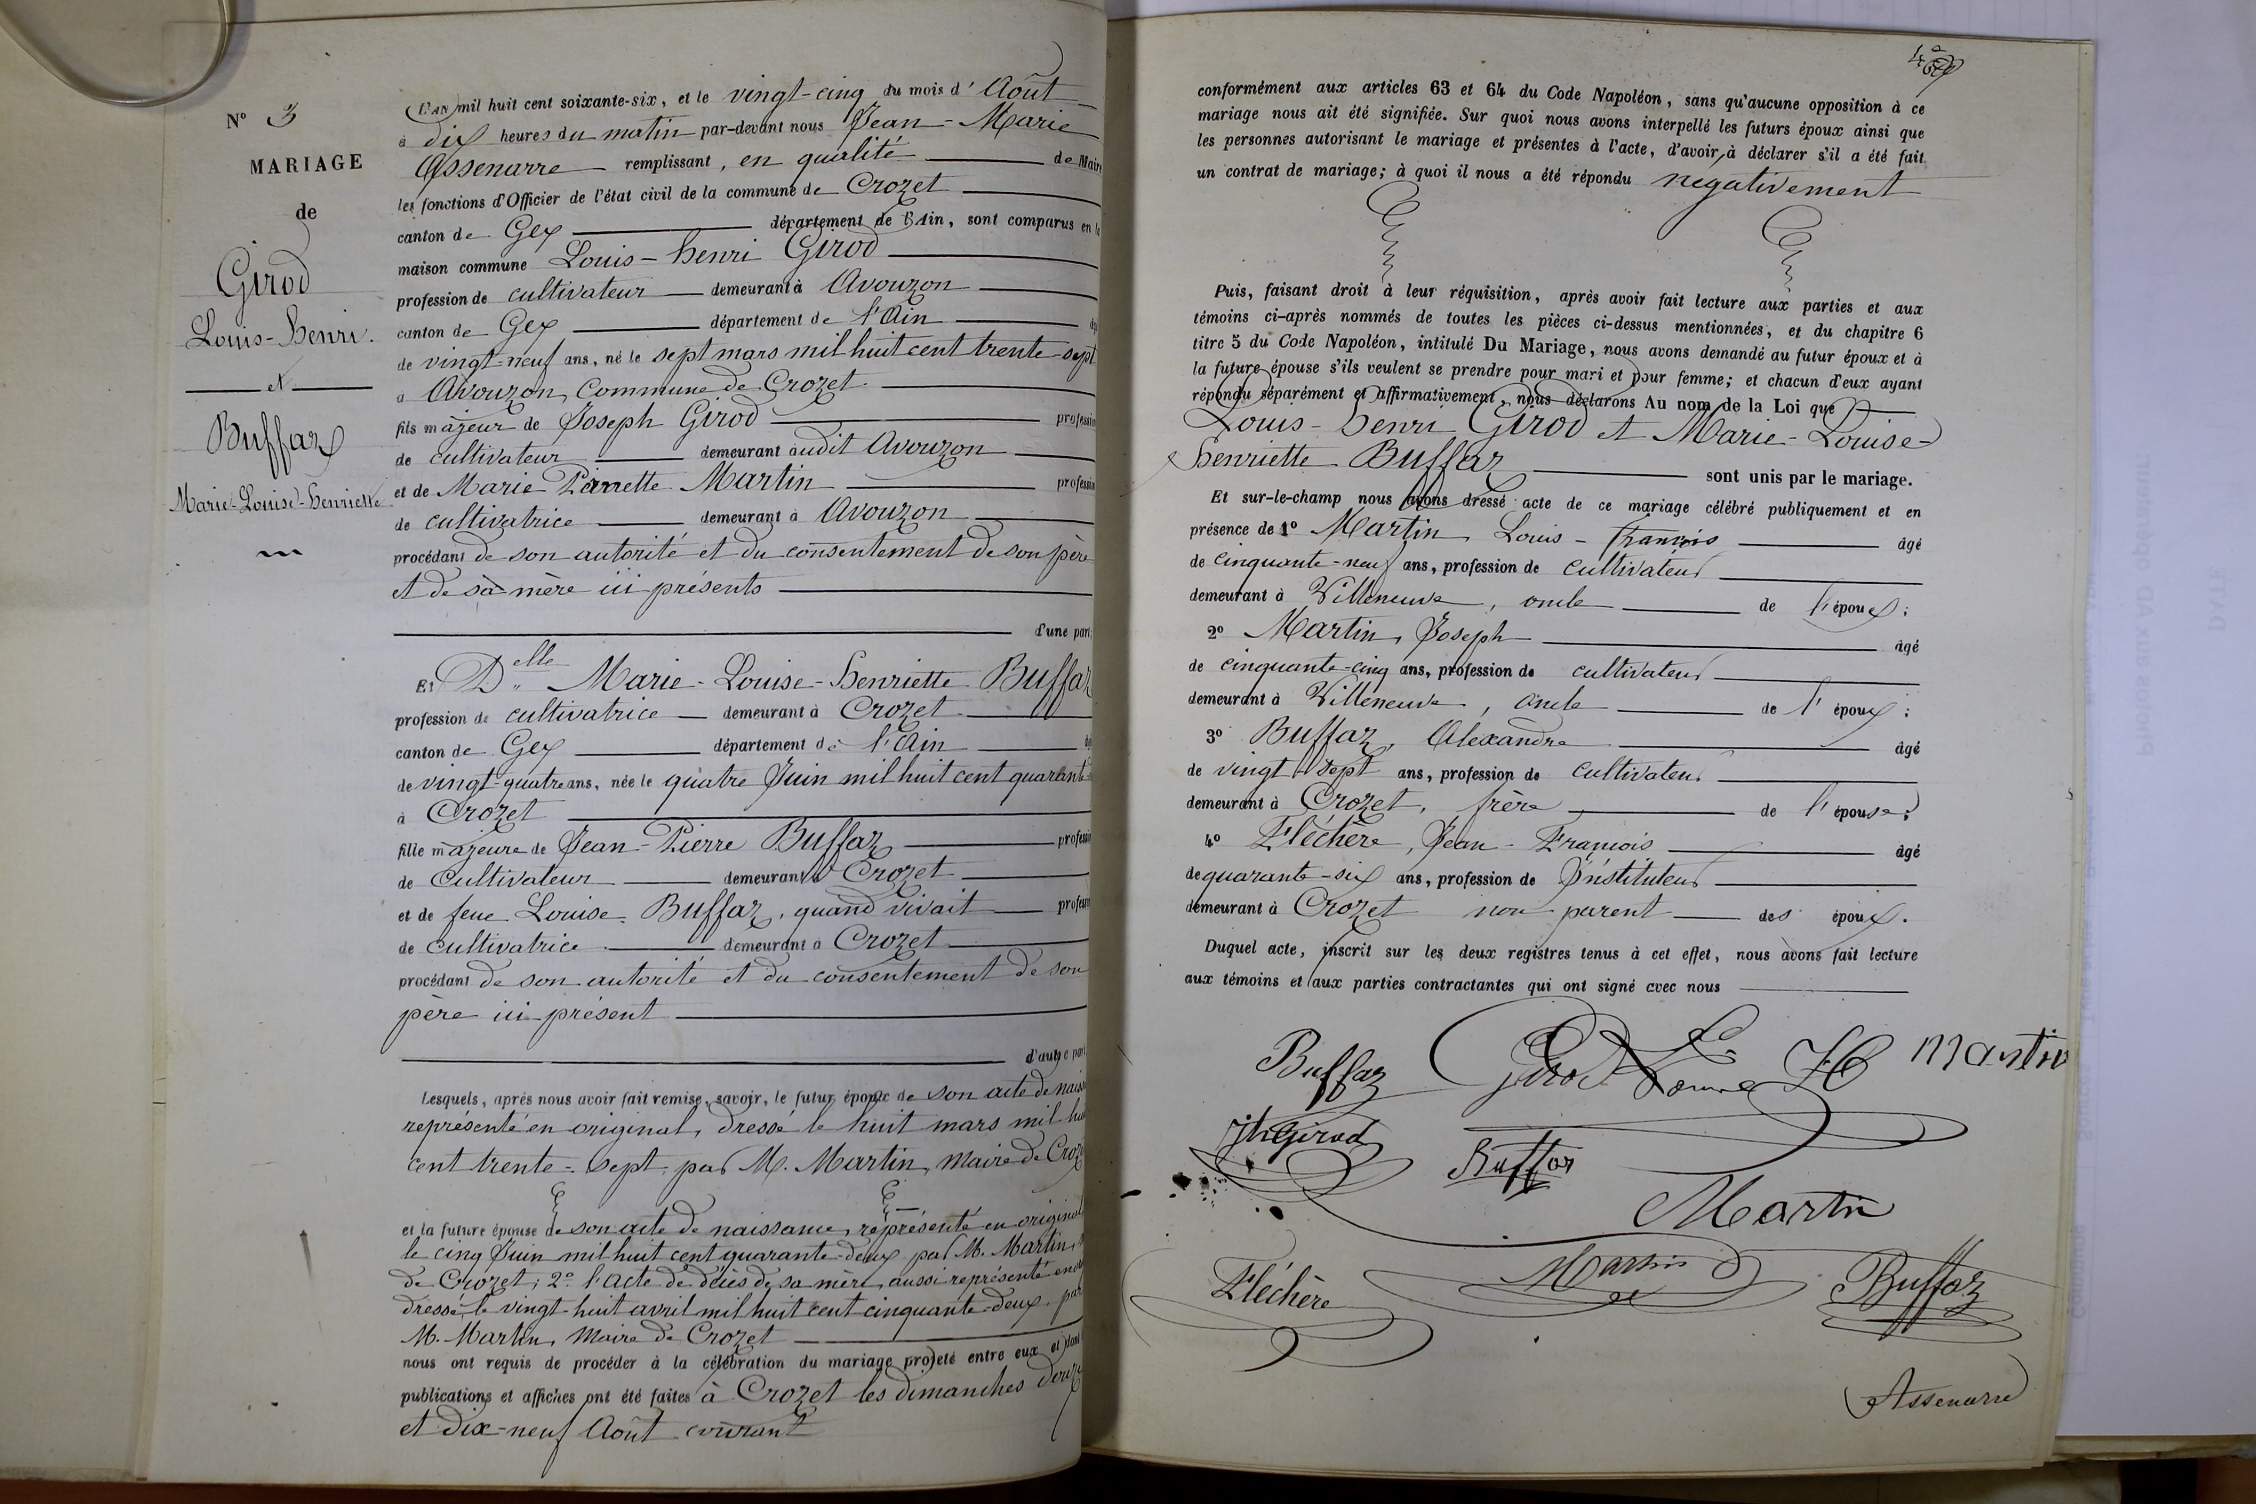 N° 3
MARIAGE
de
Girod
Louis-Henri.
et
Buffaz
Marie-Louise-Henriette
L'AN mil huit cent soixante-six, et le vingt-cinq du mois d'Août
à dix heures du matin par-devant nous Jean-Marie
Assenarre remplissant, en qualité de Maire
les fonctions d'Officier de l'état civil de la commune de Crozet
canton de Gex département de l'Ain, sont comparus en la
maison commune Louis-henri Girod
profession de cultivateur demeurant à Avouzon
canton de Gex département de l'Ain
de vingt-neuf ans, né le sept mars mil huit cent trente-sept
à Avouzon, Commune de Crozet
fils majeur de Joseph Girod profession
de cultivateur demeurant audit Avouzon
et de Marie Pierrette Martin profession
de cultivatrice demeurant à Avouzon
procédant de son autorité et du consentement de son père
et de sa mère ici présents
d'une part;
Et Delle Marie-Louise-henriette Buffaz
profession de cultivatrice demeurant à Crozet
canton de Gex département de l'Ain
de vingt-quatre ans, née le quatre Juin mil huit cent quarante
à Crozet
fille majeure de Jean-Pierre Buffaz profession
de Cultivateur demeurant à Crozet
et de feue Louise Buffaz, quand vivait profession
de cultivatrice demeurant à Crozet
procédant de son autorité et du consentement de son
père ici présent
d'autre part
Lesquels, après nous avoir fait remise, savoir, le futur époux de son acte de nais
représenté en original, dressé le huit mars mil hui
cent trente-sept, par M. Martin, Maire de Croz
et la future épouse de son acte de naissance, représenté en original
le cinq Juin mil huit cent quarante-deux par M. Martin,
de Crozet; 2° l'acte de décès de sa mère, aussi représenté en
dressé le vingt-huit avril mil huit cent cinquante-deux, par
M. Martin, Maire de Crozet
nous ont requis de procéder à la célébration du mariage projeté entre eux et dont
publications et affiches ont été faites à Crozet les dimanches douze
et dix-neuf Août courant
conformément aux articles 63 et 64 du Code Napoléon, sans qu'aucune opposition à ce
mariage nous ait été signifiée. Sur quoi nous avons interpellé les futurs époux ainsi que
les personnes autorisant le mariage et présentes à l'acte, d'avoir à déclarer s'il a été fait
un contrat de mariage; à quoi il nous a été répondu négativement
Puis, faisant droit à leur réquisition, après avoir fait lecture aux parties et aux
témoins ci-après nommés de toutes les pièces ci-dessus mentionnées, et du chapitre 6
titre 5 du Code Napoléon, intitulé Du Mariage, nous avons demandé au futur époux et à
la future épouse s'ils veulent se prendre pour mari et pour femme; et chacun d'eux ayant
répondu séparément et affirmativement, nous déclarons Au nom de la Loi que
Louis-henri Girod et Marie-Louise-
henriette Buffaz sont unis par le mariage.
Et sur-le-champ nous avons dressé acte de ce mariage célébré publiquement et en
présence de 1° Martin, Louis-françois âgé
de cinquante-neuf ans, profession de cultivateur
demeurant à Villeneuve, oncle de l'époux;
2° Martin, Joseph âgé
de cinquante-cinq ans, profession de cultivateur
demeurant à Villeneuve, oncle de l'époux;
3° Buffaz, Alexandre âgé
de vingt-sept ans, profession de cultivateur
demeurant à Crozet, frère de l'épouse;
4° Fléchère, Jean-François âgé
de quarante-six ans, profession de Instituteur
demeurant à Crozet non parent des époux.
Duquel acte, inscrit sur les deux registres tenus à cet effet, nous avons fait lecture
aux témoins et aux parties contractantes qui ont signé avec nous
Buffaz Girod Louis H Martin
Jh Girod Buffaz
Martin
Fléchère Martin Buffaz
Assenarre